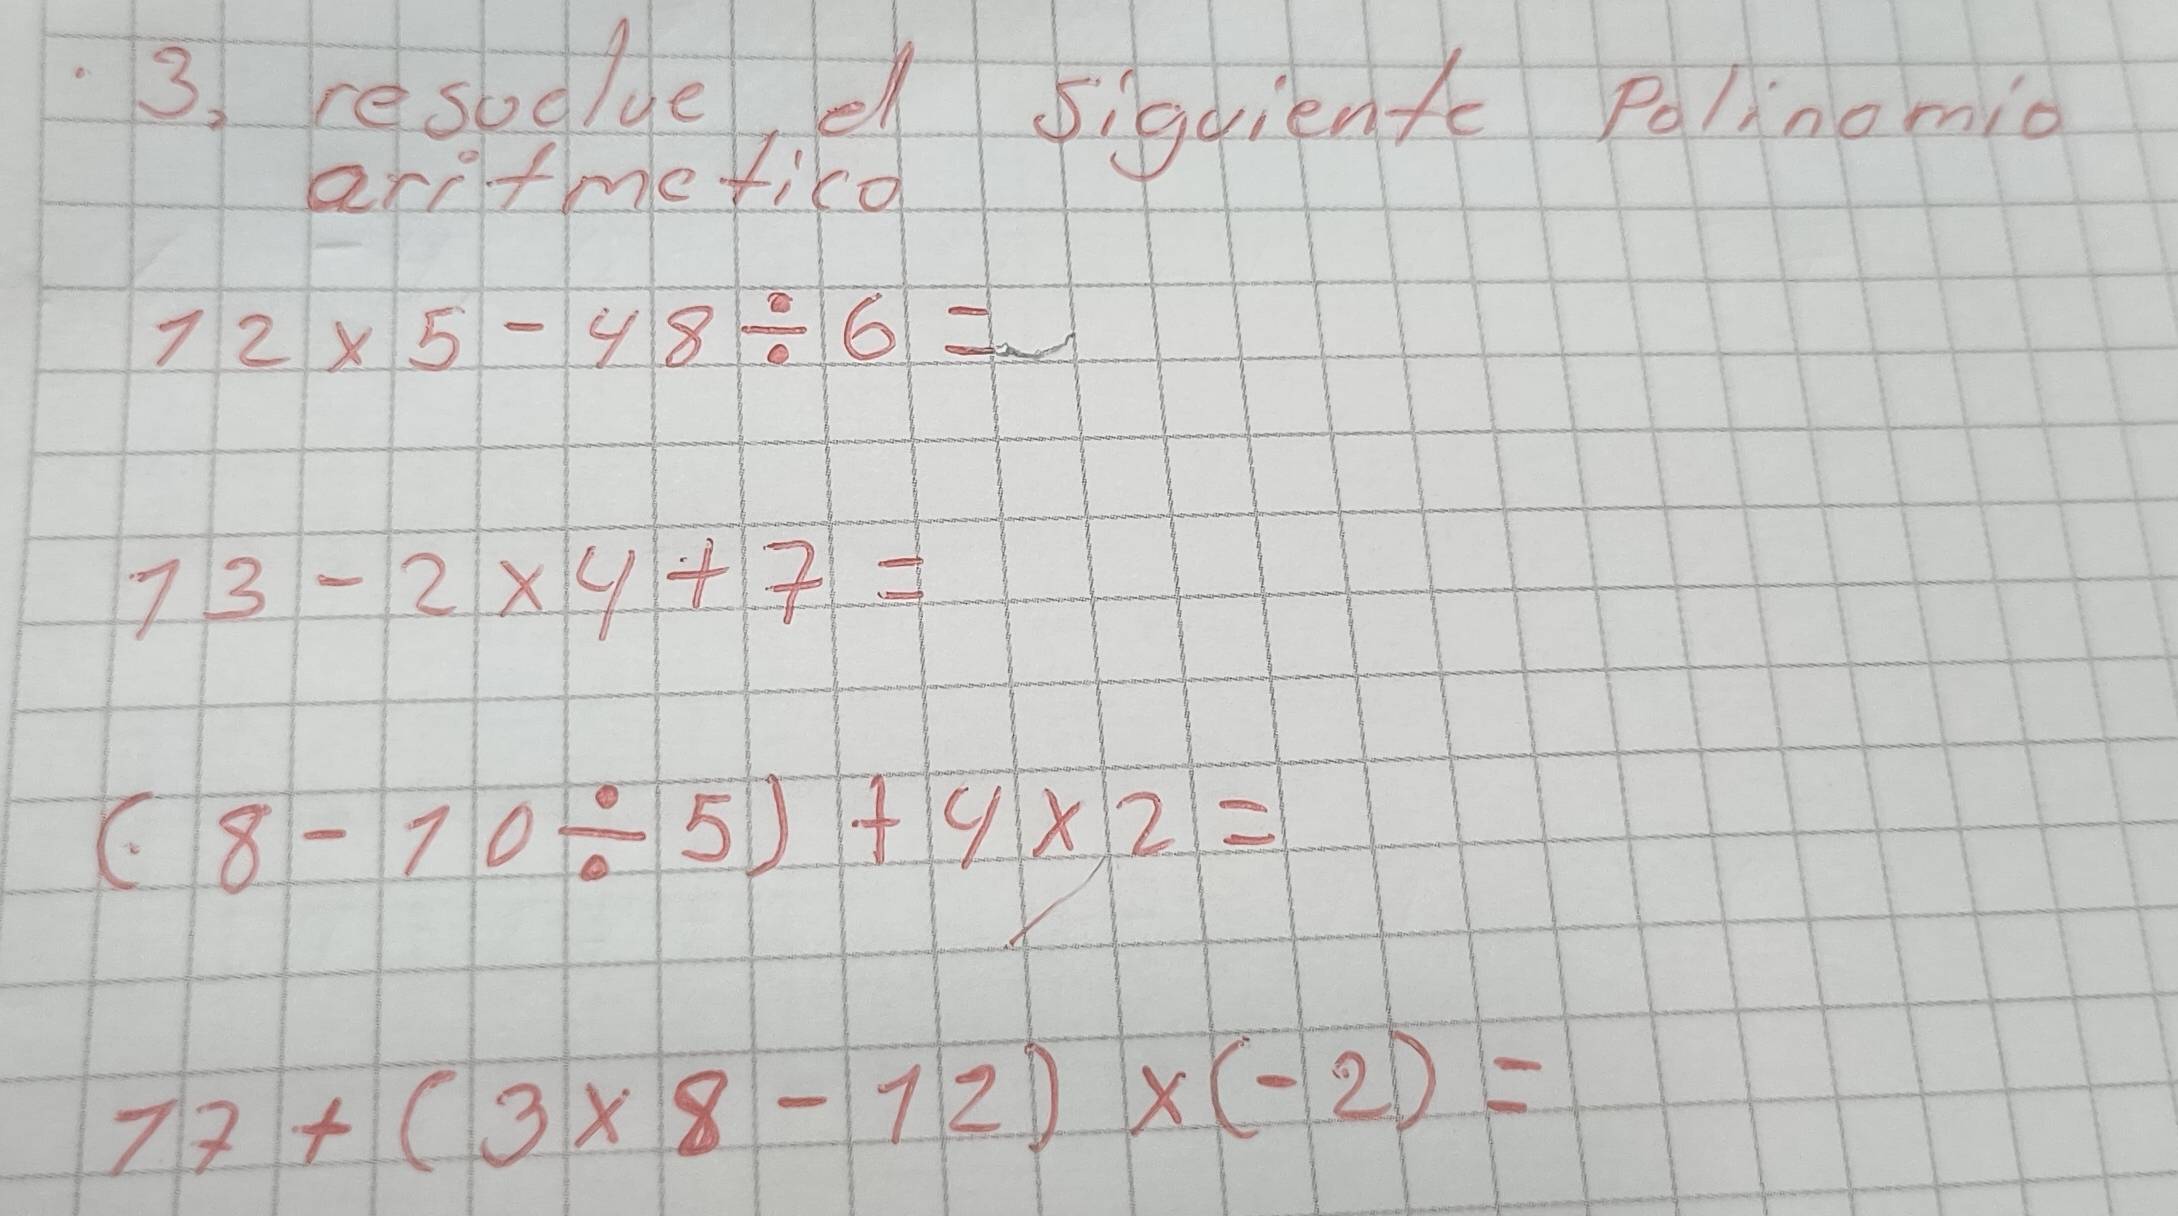 3, resuelve, el siguiente Polinomio
aritmetico
12 x 5 - 48 ÷ 6 =
13 - 2 x 4 + 7 =
(8 - 10 ÷ 5) + 4 x 2 =
17 + (3 x 8 - 12) x (-2) =